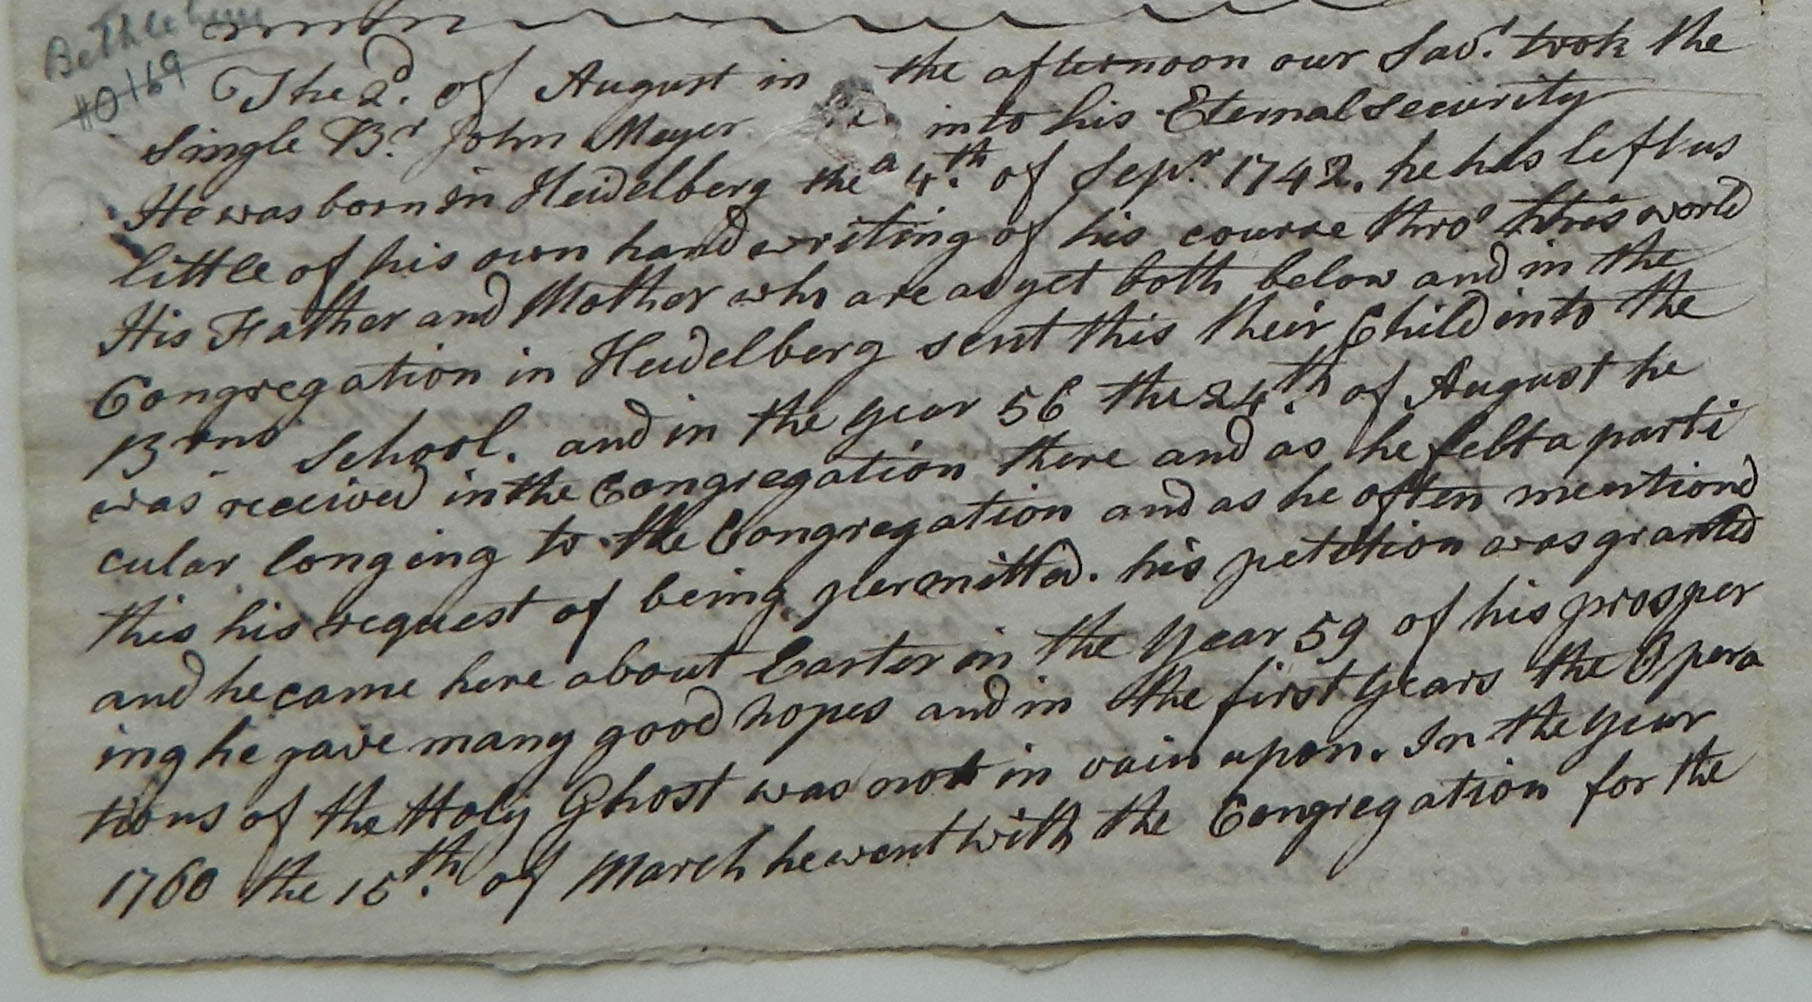 Bethlehem
#0169
The 2d. of August in the afternoon our Savr. took the
Single Br. John Meyer into his Eternal security
He was born in Heidelberg the 4th. of Sepr. 1742. he has left us
little of his own hand writing of his course thro' this world
His Father and Mother who are as yet both below and in the
Congregation in Heidelberg sent this their Child into the
Brnn School. and in the year 56 the 24th. of August he
was received in the Congregation there and as he felt a parti
cular longing to the Congregation and as he often mentiond
this his request of being permitted. his petition was granted
and he came here about Easter in the Year 59 of his prosper
ing he gave many good hopes and in the first Years the Opera
tions of the Holy Ghost was not in vain upon. In the Year
1760 the 15th. of March he went with the Congregation for the